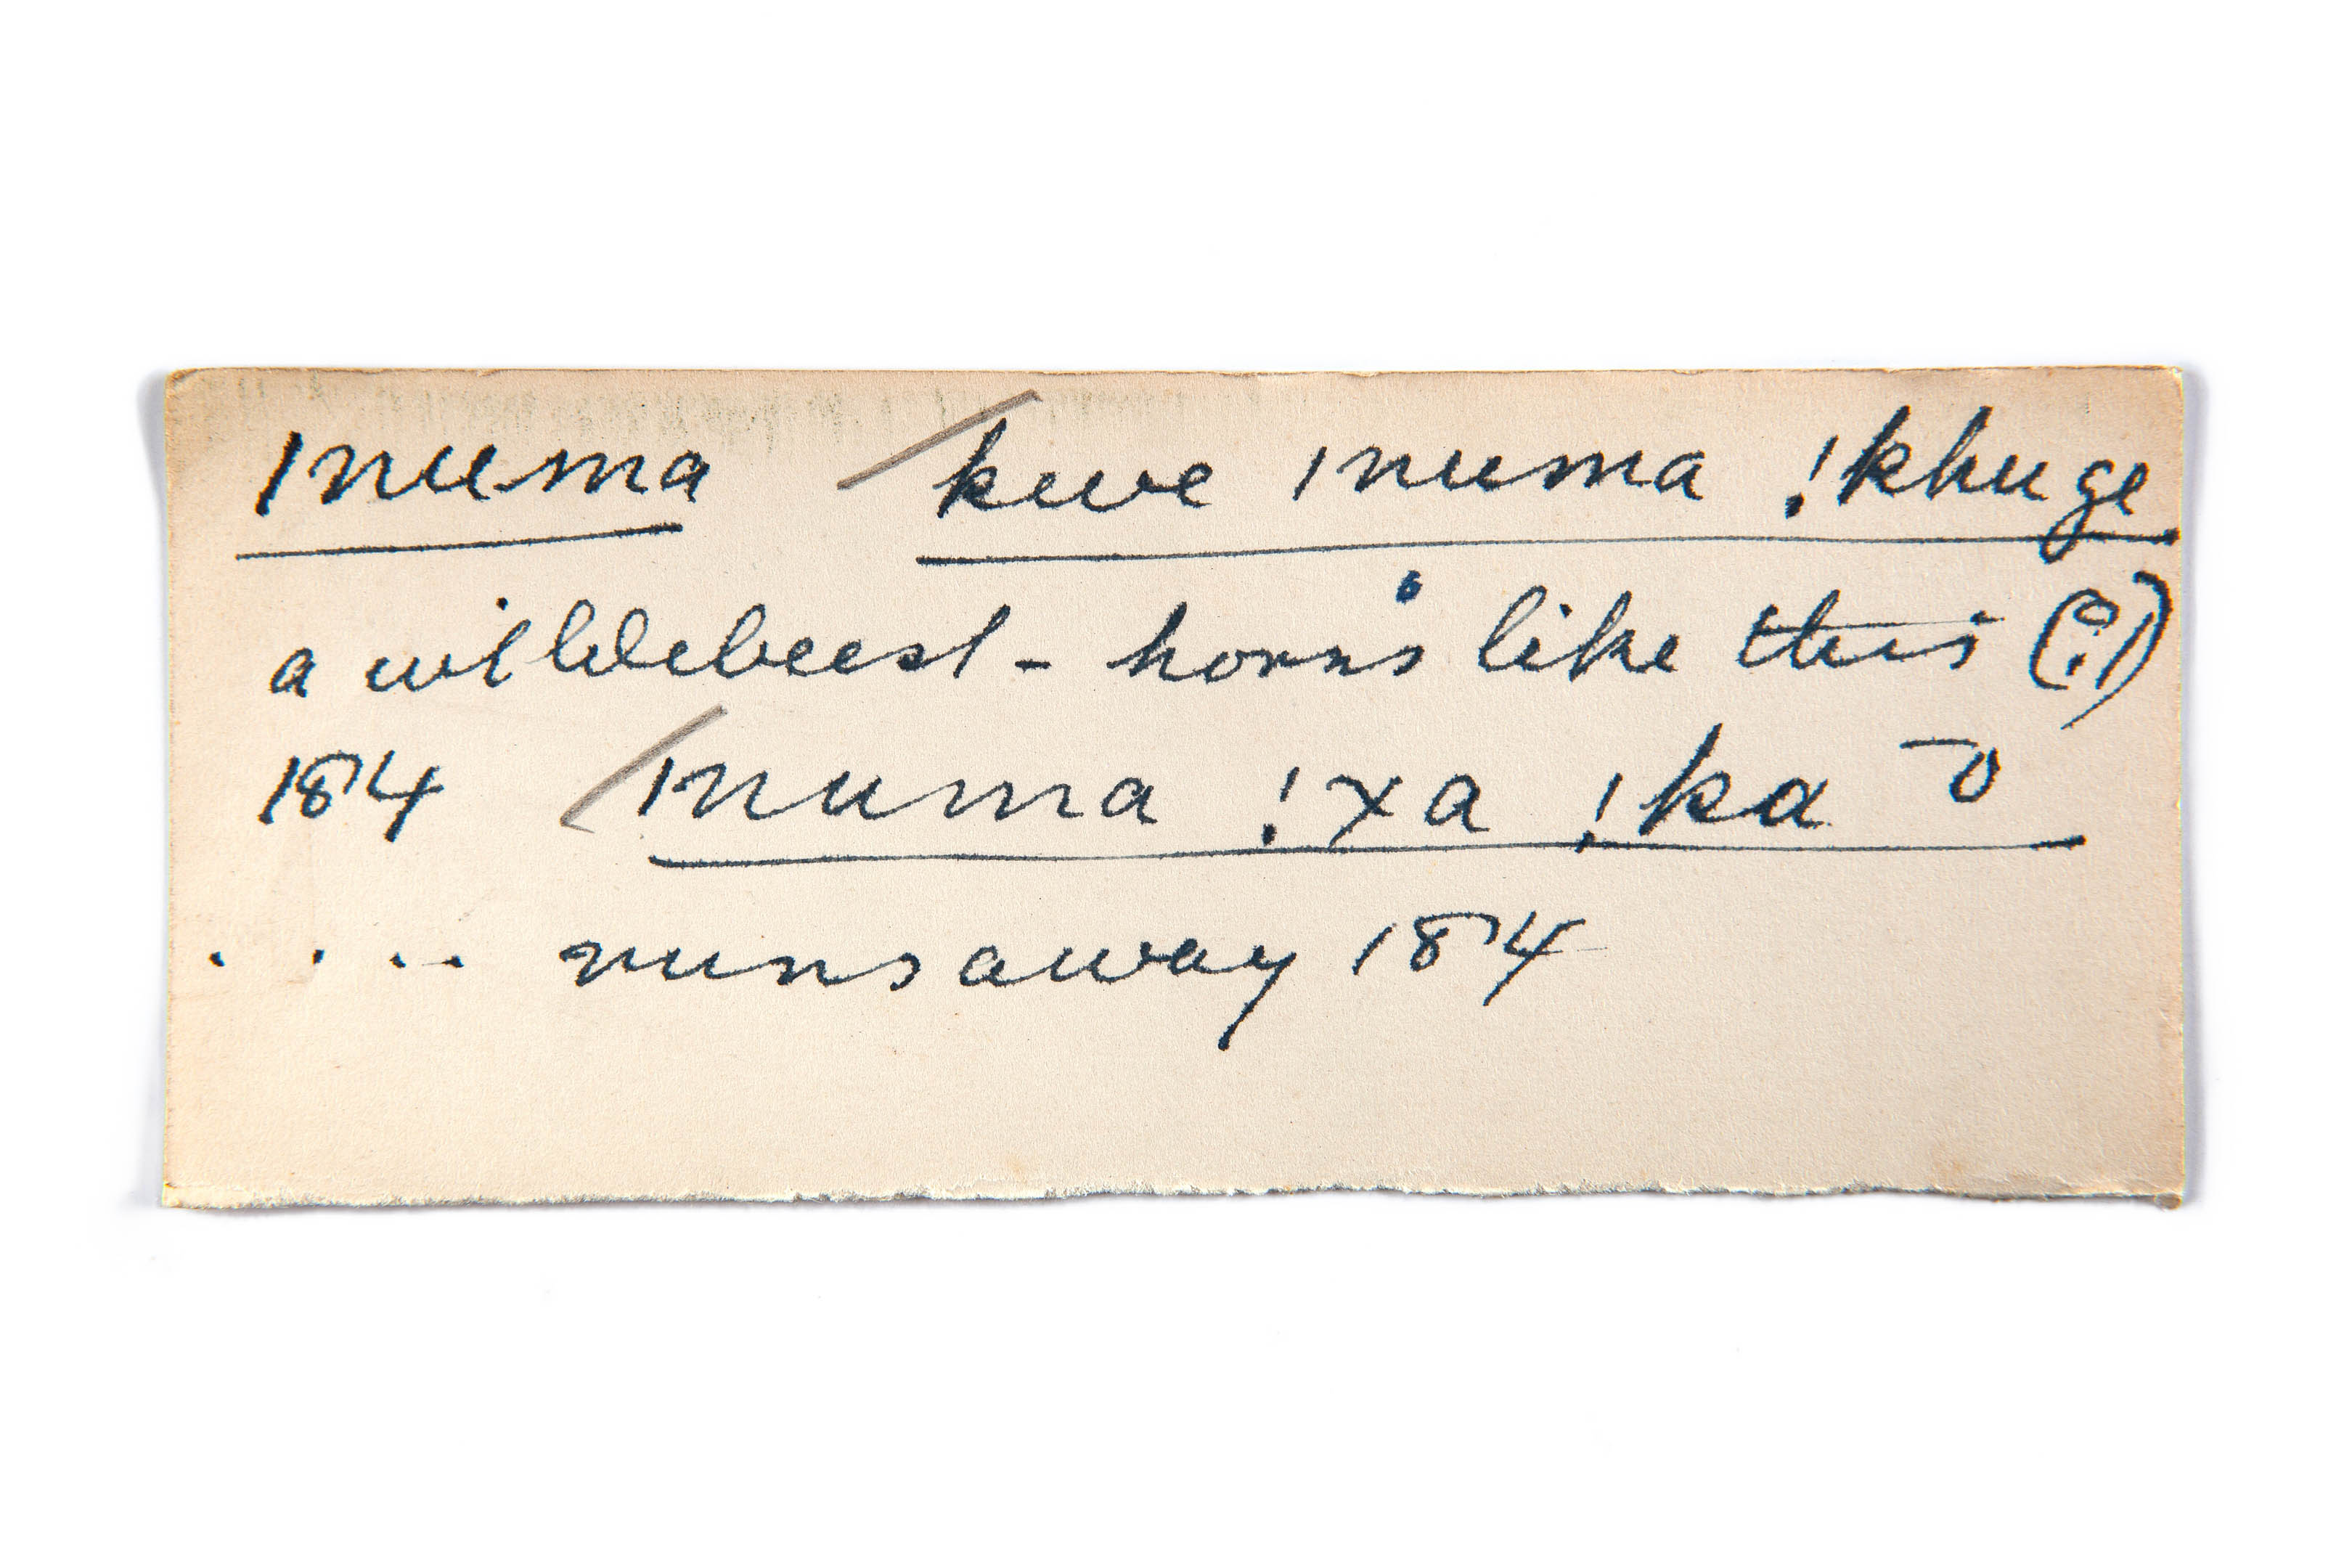 ǀnuma kwe ǀnuma !khuge
a wildebeest - horns like this (?!)
184 ǀnuma !xa !ka ō
. . . . runs away 184